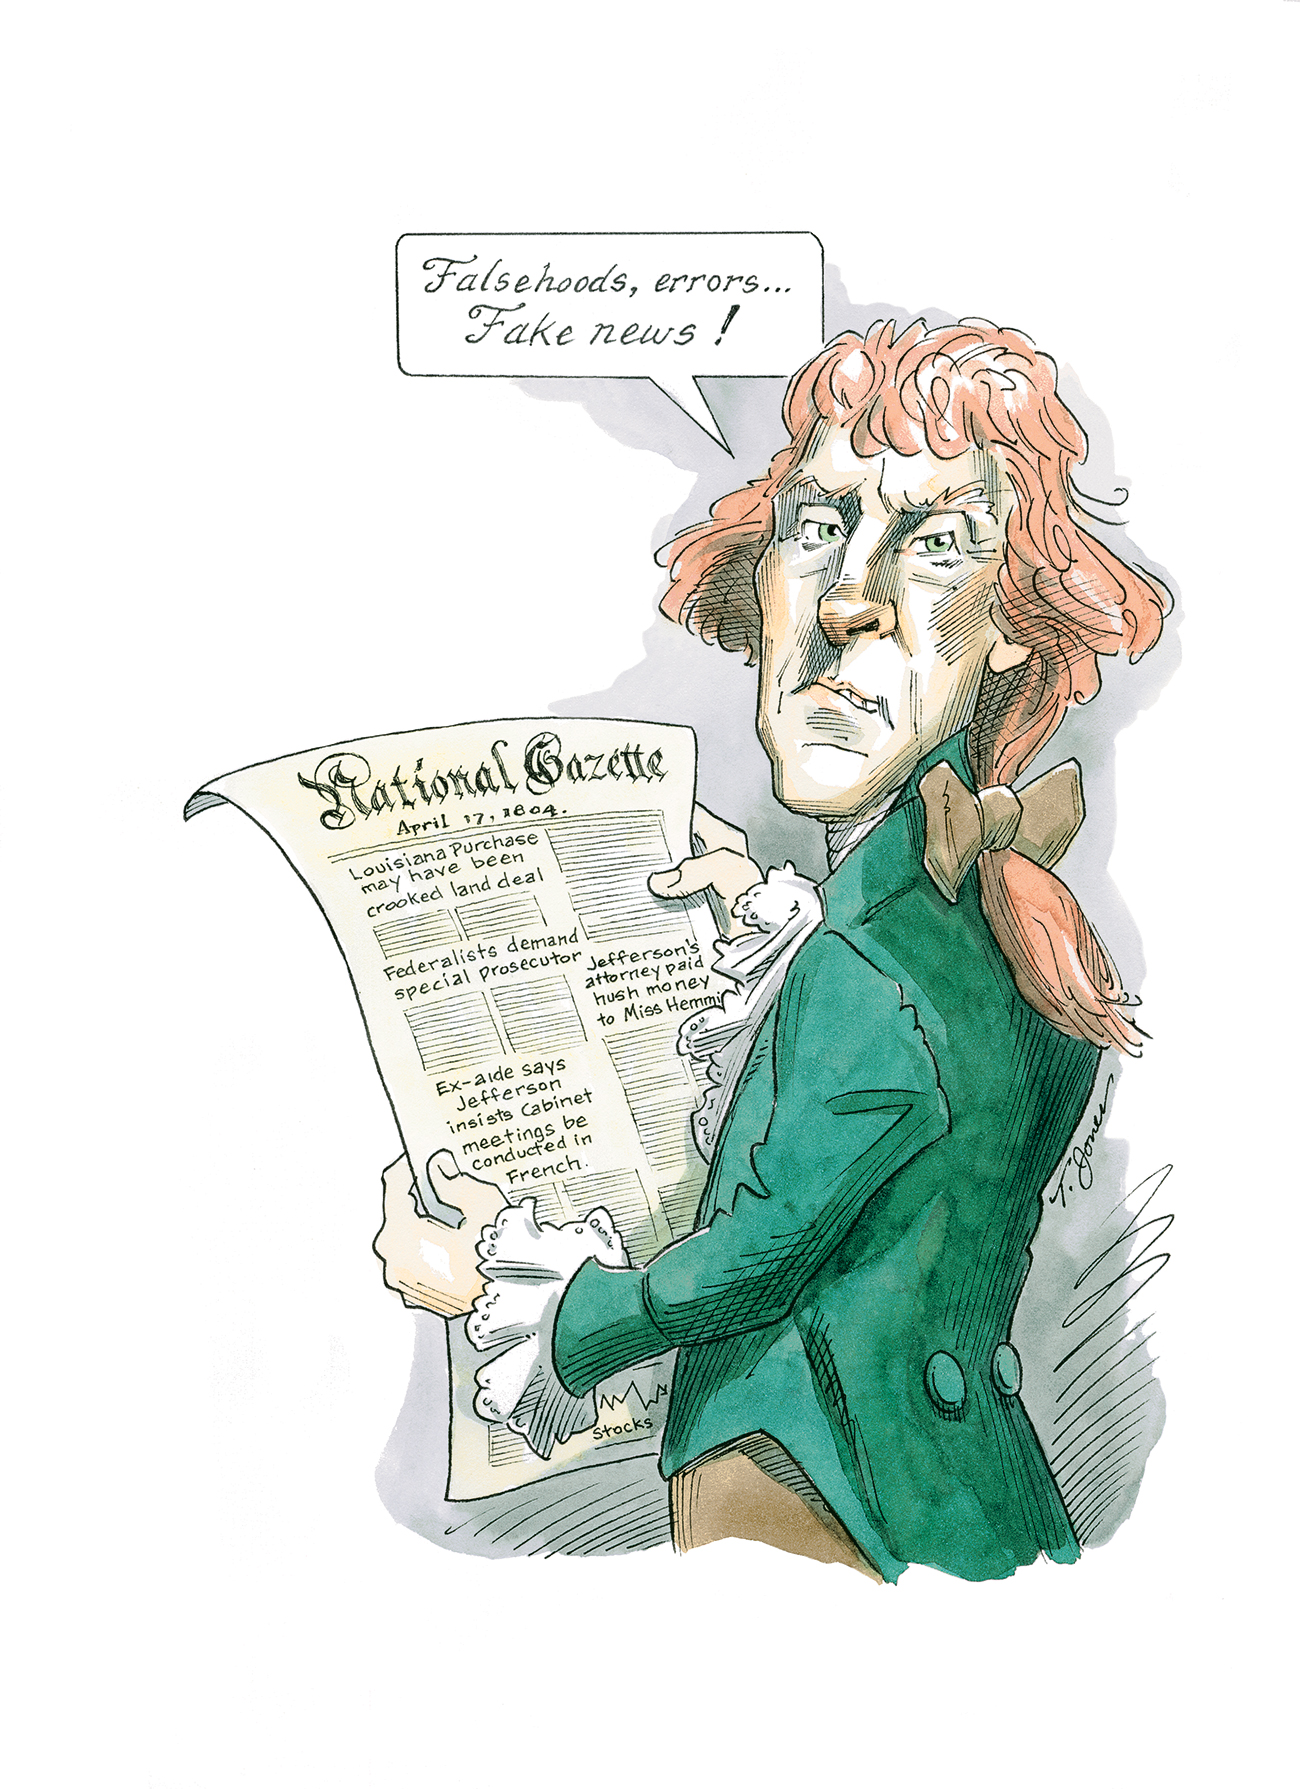 Falsehoods, errors...
Fake news!
National Gazette
April 17, 1804.
Louisiana Purchase
may have been
crooked land deal
Federalists demand
special prosecutor
Jefferson's
attorney paid
hush money
to Miss Hemmi
Ex-aide says
Jefferson
insists Cabinet
meetings be
conducted in
French.
Stocks
T. Jones